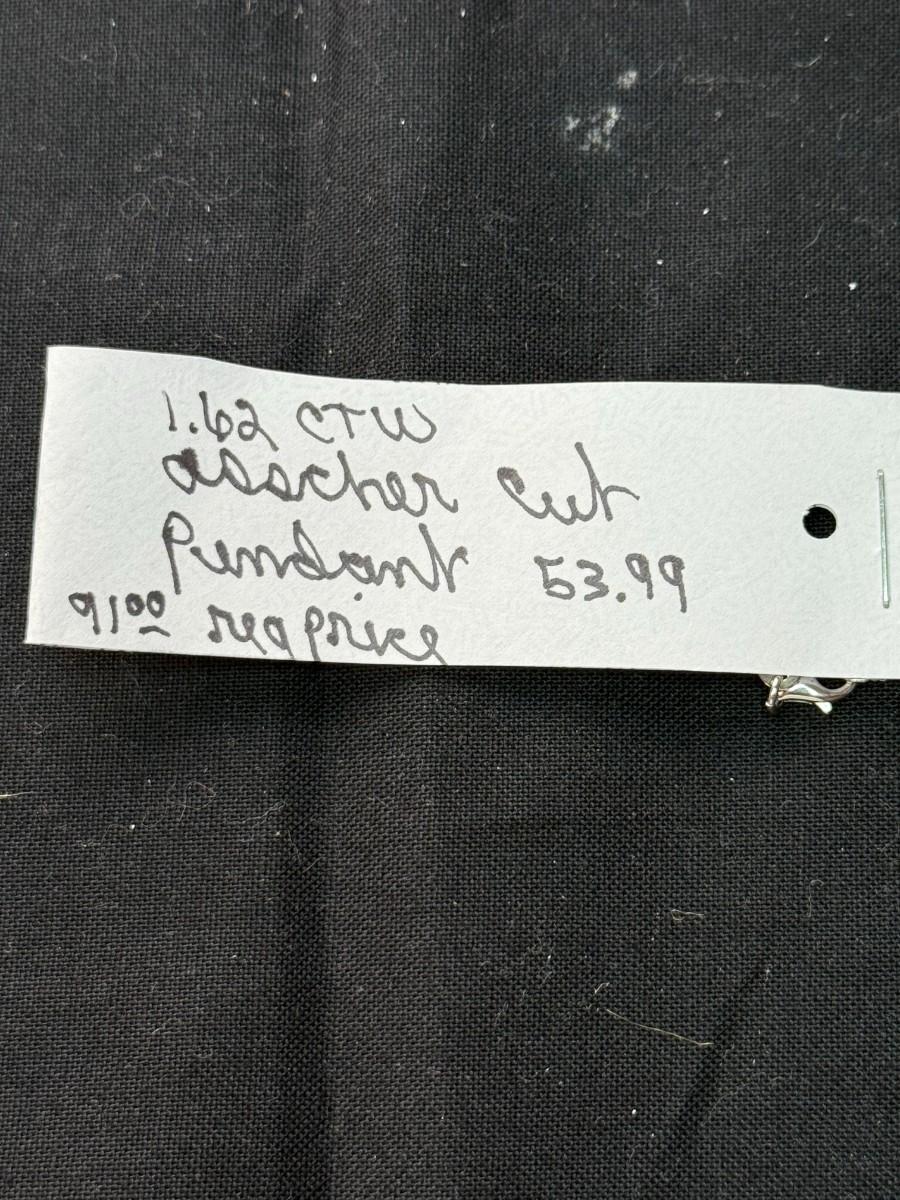 1.62 CTW
asscher cut
Pendant 53.99
9100 reg price